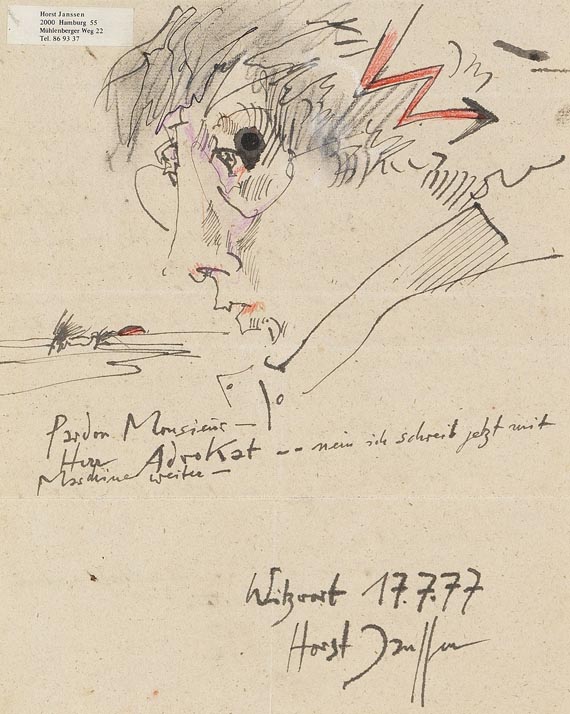 Horst Janssen
2000 Hamburg 55
Mühlenberger Weg 22
Tel. 86 93 37
Pardon Monsieur —
Herr Advokat -- nein ich schreib jetzt mit
Maschine weiter —
Witzwort 17.7.77
Horst Janssen